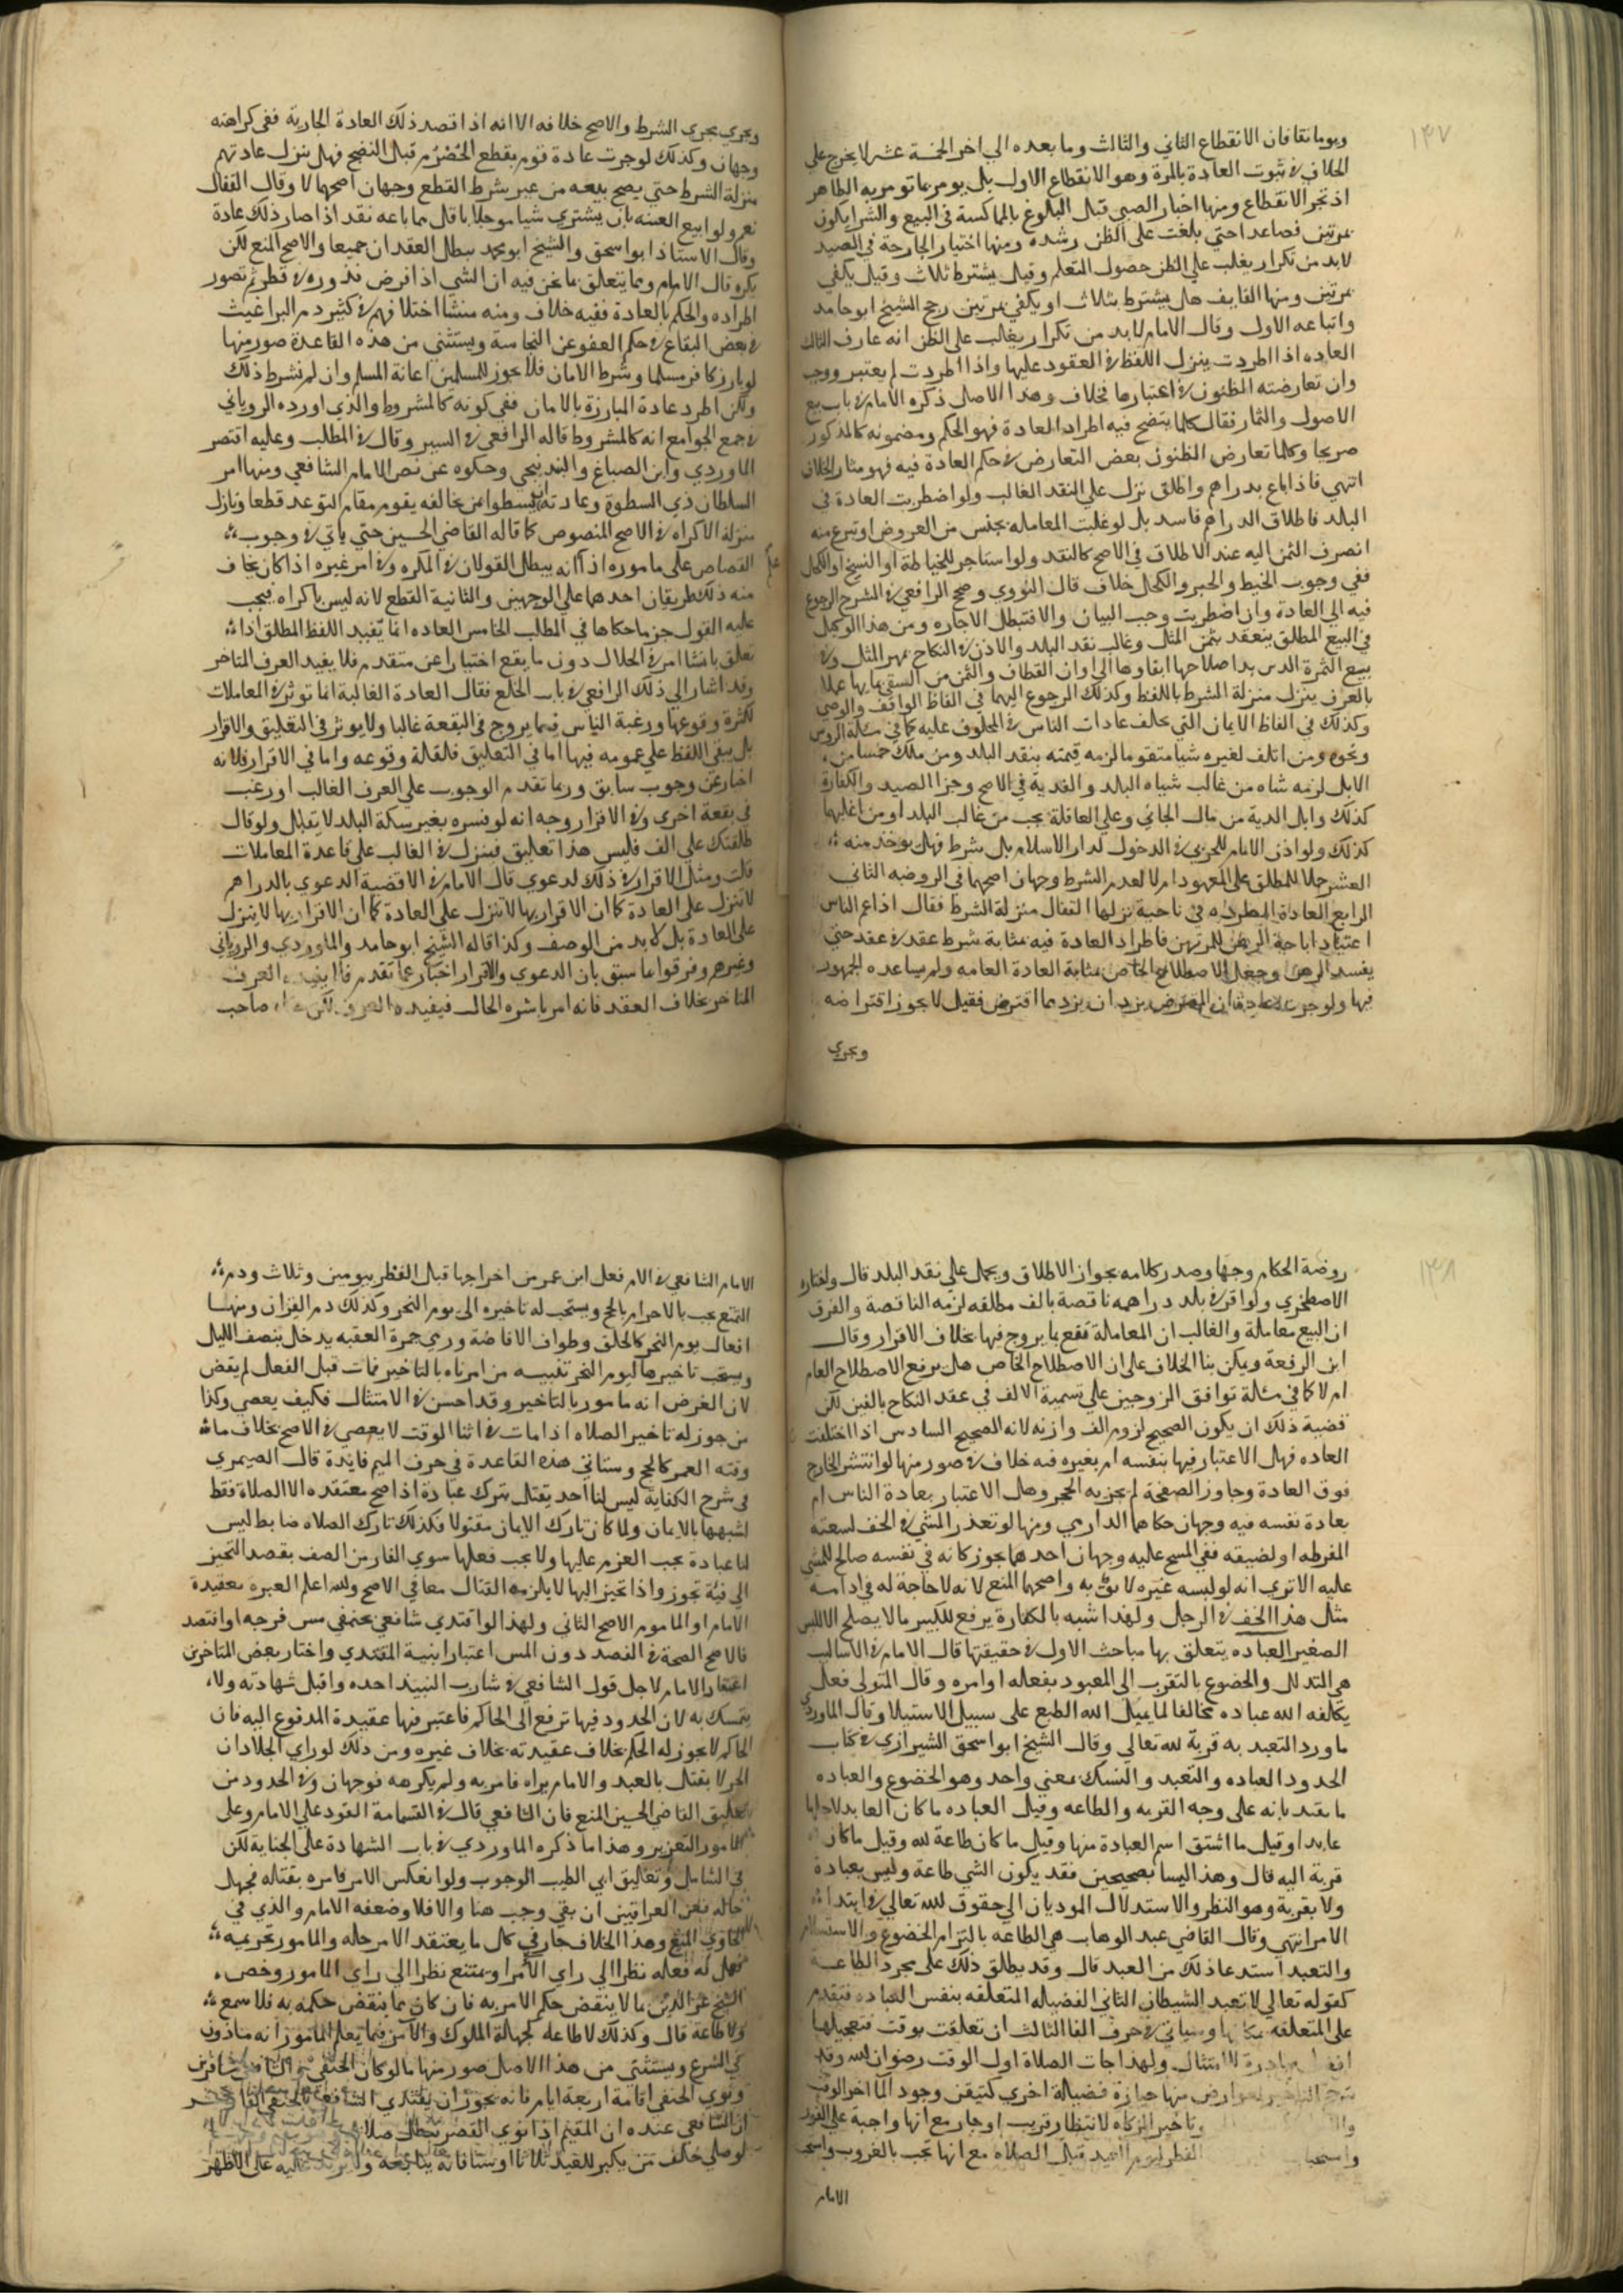 ١٣٧
ويوما نقا فان الانقطاع الثاني والثالث وما بعده الي اخر الخمسة عشر لا يخرج علي
الخلاف في ثبوت العادة بالمرة وهو الانقطاع الاول بل يومر بما تومر به الطاهر
اذ تجر الانقطاع ومنها اختبار الصبي قبل البلوغ بالمماكسة في البيع والشرا يكون
مرتين فصاعدا حتي يلغب علي الظن رشده ومنها اختبار الجارحة في الصيد
لا بد من تكرار يغلب علي الظن حصول التعلم وقيل يشترط ثلاث وقيل يكفي
مرتين ومنها القايف هل يشترط بثلاث او يكفي مرتين رجح الشيخ ابوحامد
واتباعه الاول وقال الامام لا بد من تكرار يغلب علي الظن انه عارف الثالث
العاده اذا اطردت ينزل اللفظ في العقود عليها واذا اطردت لم يعتبر ووجب
وان تعارضته الظنون في اعتبارها فخلاف وهذا الاصل ذكره الامام في باب بيع
الاصول والثمار فقال كلما يتضح فيه اطراد العادة فهو الحكم ومضمونه كالمذكور
صريحا وكلما تعارض الظنون بعض التعارض في حكم العادة فيه فهو مثار الخلاف
انتهي فاذا باع بدراهم واطلق نزل علي النقد الغالب ولو اضطربت العادة في
البلد فاطلاق الدراهم فاسد بل لو غلبت المعامله بجنس من العروض او نوع منه
انصرف الثمن اليه عند الاطلاق في الاصح كالنقد ولو استاجر للخياطة او النسخ او الكحل
ففي وجوب الخيط والحبر والكحل خلاف قال النووي وصحح الرافعي في الشرح الرجوع
فيه الي العادة وان اضطربت وجب البيان والا فتبطل الاجاره ومن هذا الوكيل
في البيع المطلق ينعقد بثمن المثل وغالب نقد البلد والاذن في النكاح بمهر المثل وفي
بيع الثمرة الذي بدا صلاحها ابقاوها الي اوان القطاف والثمن من السقي بمايها عملا
بالعرف ينزل منزلة الشرط باللفظ وكذلك الرجوع اليهما في الفاظ الواقف والوصي
وكذلك في الفاظ الايمان التي تختلف عادات الناس في المحلوف عليه كما في مسئلة الروس
ونحوه ومن اتلف لغيره شيا متقوما لزمه قيمته بنقد البلد ومن ملك خمسا من
الابل لزمه شاه من غالب شياه البلد والفدية في الاصح وجزا الصيد والكفارة
كذلك وابل الدية من مال الجاني وعلي العاقلة يجب من غالب البلد او من اغلبها
كذلك ولو اذن الامام للحربي في الدخول لدار الاسلام بلا شرط فهل يوخذ منه
العشر حملا للمطلق علي المعهود ام لا لعدم الشرط وجهان اصحهما في الروضه الثاني
الرابع العادة المطرده في ناحية نزلها القفال منزلة الشرط فقال اذا عم الناس
اعتياد اباحة الرهن للمرتهن فاطراد العادة فيه بمثابة شرط عقد في عقد حتي
يفسد الرهن وجعل الاصطلاح الخاص بمثابة العادة العامه ولم يساعده الجمهور
فيها ولو جرت عادة ان المقترض يرد ازيد مما اقترض فقيل لا يجوز اقتراضه
ويجري
ويجري مجري الشرط والاصح خلافه الا انه اذا قصد ذلك العادة الجارية ففي كراهته
وجهان وكذلك لو جرت عادة قوم بقطع الحصرم قبل النضج فهل ينزل عادتهم
منزلة الشرط حتي يصح بيعه من غير شرط القطع وجهان اصحهما لا وقال القفال
نعم ولو ابيع العينه بان يشتري شيا موجلا باقل مما باعه نقدا اذا صار ذلك عادة
وقال الاستاذ ابو اسحق والشيخ ابومحمد يبطل العقدان جميعا والاصح المنع لكن
يكره قال الامام ومما يتعلق بما نحن فيه ان الشي اذا فرض ندوره في قطر ثم تصور
اطراده والحكم بالعادة ففيه خلاف ومنه منشا اختلافهم في كثير دم البراغيث
في بعض البقاع في حكم العفو عن النجاسة ويستثني من هذه القاعدة صور منها
لو بارز كافر مسلما وشرط الامان فلا يجوز للمسلمين اعانة المسلم وان لم نشرط ذلك
ولكن اطرد عادة المبارزة بالامان ففي كونه كالمشروط والذي اورده الروياني
في جمع الجوامع انه كالمشروط قاله الرافعي في السير وقال في المطلب وعليه اقتصر
الماوردي وابن الصباغ والبندنيجي وحكوه عن نص الامام الشافعي ومنها امر
السلطان ذي السطوة وعادته ان يسطوا بمن يخالفه يقوم مقام التوعد قطعا ونازل
منزلة الاكراه في الاصح المنصوص كما قاله القاضي الحسين حتي ياتي في وجوب
القصاص علي ماموره اذا انه يبطل القولان في المكره وفي امر غيره اذا كان يخاف
منه ذلك طريقان احدهما علي الوجهين والثانية القطع لانه ليس باكراه فيجب
عليه القول جزما حكاها في المطلب الخامس العاده انما تفيد اللفظ المطلق اذا
تعلق بانشا امر في الحلال دون ما يقع اختبارا عن متقدم فلا يفيد العرف المتاخر
وقد اشار الي ذلك الرافعي في باب الخلع فقال العادة الغالبة انما توثر في المعاملات
لكثرة وقوعها ورغبة الناس فيما يروج في البقعة غالبا ولا يوثر في التعليق والاقرار
بل يبقي اللفظ علي عمومه فيها اما في التعليق فلقلة وقوعه واما في الاقرار فلانه
اخبار عن وجوب سابق وربما تقدم الوجوب علي العرف الغالب او رغب
في بقعة اخري وفي الاقرار وجه انه لو فسره بغير سكة البلد لا يقبل ولو قال
طلقتك علي الف فليس هذا تعليق فينزل في الغالب علي قاعدة المعاملات
قلت ومثل الاقرار في ذلك لدعوي قال الامام في الاقضية الدعوي بالدراهم
لا تنزل علي العادة كما ان الاقرار بها لا تنزل علي العادة كما ان الاقرار بها لا ينزل
علي العادة بل لا بد من الوصف وكذا قاله الشيخ ابو حامد والماوردي والروياني
وغيرهم وفرقوا بما سبق بان الدعوي والاقرار اخبار عما تقدم فلا يفيده العرف
المتاخر بخلاف العقد فانه امر باشره الحال فيفيده العرف لكن صاحب
١٣٨
روضة الحكام وجها وصدر كلامه بجواز الاطلاق ويحمل علي نقد البلد قال واختاره
الاصطخري ولو اقر في بلد دراهمه ناقصة بالف مطلقه لزمه الناقصة والفرق
ان البيع معاملة والغالب ان المعاملة تقع بما يروج فيها بخلاف الاقرار وقال
ابن الرفعة ويمكن بنا الخلاف علي ان الاصطلاح الخاص هل يرفع الاصطلاح العام
ام لا كما في مسئلة توافق الزوجين علي تسمية الالف في عقد النكاح بالفين لكن
قضية ذلك ان يكون الصحيح لزوم الف وازنه لانه الصحيح السادس اذا اختلفت
العاده فهل الاعتبار فيها بنفسه ام بغيره فيه خلاف في صور منها لو انتشر الخارج
فوق العادة وجاوز الصفحة لم يجزيه الحجر وهل الاعتبار بعادة الناس ام
بعادة نفسه فيه وجهان حكاهما الدارمي ومنها لو تعذر المشي في الخف لسعته
المفرطه او لضيقه ففي المسح عليه وجهان احدهما يجوز كانه في نفسه صالح للمشي
عليه الا تري انه لو لبسه غيره لاق به واصحهما المنع لانه لا حاجة له في ادامه
مثل هذا الخف في الرجل ولهذا شبه بالكفارة يرفع للكبير ما لا يصلح الا للبس
الصغير العباده يتعلق بها مباحث الاول في حقيقتها قال الامام في الاساليب
هي التذلل والخضوع بالتقرب الي المعبود بفعله اوامره وقال المتولي فعل
يكلفه الله عباده مخالفا لما يميل اليه الطبع علي سبيل الاستيلا وقال الماوردي
ما ورد التعبد به قربة لله تعالي وقال الشيخ ابو اسحق الشيرازي في كتاب
الحدود العباده والتعبد والنسك بمعني واحد وهو الخضوع والعباده
ما يعتد بانه علي وجه القربه والطاعه وقيل العباده ما كان العابد لاجلها
عابدا وقيل ما اشتق اسم العبادة منها وقيل ما كان طاعة لله وقيل ما كان
قربة اليه قال وهذا ليسا بصحيحين فقد يكون الشي طاعة وليس بعبادة
ولا بقربة وهو النظر والاستدلال الموديان الي حقوق لله تعالي في ابتدا
الامر انتهي وقال القاضي عبد الوهاب هي الطاعه بالتزام الخضوع والاستسلام
والتعبد استدعا ذلك من العبد قال وقد يطلق ذلك علي مجرد الطاعة
كقوله تعالي لا تعبد الشيطان الثاني الفضيله المتعلقه بنفس العباده فتقدم
علي المتعلقه بمكانها وسياتي في حرف الفا الثالث ان تعلقت بوقت فتعجيلها
افضل مبادرة للامتثال ولهذا جات الصلاة اول الوقت رضوان لله وقد
لعوارض منها حيازة فضيلة اخري كتيقن وجود الما اخر الوقت
وتاخير الزكاه لانتظار قريب او جار مع انها واجبة علي الفور
الفطر ليوم العيد قبل الصلاه مع انها تجب بالغروب واستحب
الامام
الامام الشافعي في الام فعل ابن عمر من اخراجها قبل الفطر بيومين وثلاث ودم
التمتع يجب بالاحرام بالحج ويستحب له تاخيره الي يوم النحر وكذلك دم القران ومنها
افعال يوم النحر كالحلق وطواف الافاضة ورمي جمرة العقبه يدخل بنصف الليل
ويستحب تاخيرها ليوم النحر تنبيه من امرناه بالتاخير فمات قبل الفعل لم يقض
لان الغرض انه مامور بالتاخير وقد احسن في الامتثال فكيف يعصي وكذا
من جوز له تاخير الصلاه اذا مات في اثنا الوقت لا يعصي في الاصح بخلاف ما
وقته العمر كالحج وستاتي هذه القاعدة في حرف الميم فايدة قال الصيمري
في شرح الكفاية ليس لنا احد يقتل بترك عبادة اذا صح معتقده الا الصلاة فقط
لشبهها بالايمان ولما كان تارك الايمان مقتولا فكذلك تارك الصلاه ضابط ليس
لنا عبادة يجب العزم عليها ولا يجب فعلها سوي الفار من الصف بقصد التحيز
الي فئة تجوز واذا تحيز اليها لا يلزمه القتال معها في الاصح ولله اعلم العبره بعقيدة
الامام او الماموم الاصح الثاني ولهذا لو اقتدي شافعي بحنفي مس فرجه او افتصد
فالاصح الصحة في الفصد دون المس اعتبارا بنية المقتدي واختار بعض المتاخرين
اعتقاد الامام لاجل قول الشافعي في شارب النبيذ احده واقبل شهادته ولا
يتمسك به لان الحدود فيها ترفع الي الحاكم فاعتبر فيها عقيدة المدفوع اليه فان
الحاكم لا يجوز له الحكم بخلاف عقيدته بخلاف غيره ومن ذلك لو راي الجلاد ان
الحر لا يقتل بالعبد والامام يراه فامر به ولم يكرهه فوجهان وفي الحدود من
تعليق القاضي الحسين المنع فان الشافعي قال في القسامة القود علي الامام وعلي
المامور التعزير وهذا ما ذكره الماوردي في باب الشهادة علي الجناية لكن
في الشامل وتعاليق ابي الطيب الوجوب ولو انعكس الامر فامره بقتله فجهل
حاله فعن العراقيين ان بقي وجب هنا والا فلا وضعفه الامام والذي في
الحاوي المنع وهذا الخلاف جار في كل ما يعتقد الامر حله والمامور تحريمه
فهل له فعله نظرا الي راي الامر او يمتنع نظرا الي راي المامور وخص
الشيخ عز الدين بما لا ينقض حكم الامر به فان كان مما ينقض حكمه به فلا سمع
ولا طاعة قال وكذلك لا طاعة لجهالة الملوك والامر فيما يعلم المامور انه ماذون
في الشرع ويستثني من هذا الاصل صور منها ما لو كان الحنفي والشافعي مسافرين
ونوي الحنفي اقامة اربعة ايام فانه يجوز ان يقتدي الشافعي بالحنفي القاصر
ان الشافعي عنده ان المقيم اذا نوي القصر بطلت صلاته
لو صلي خلف من يكبر للعيد ثلاثا او ستا فانه يتابعه ولا يزيد عليه علي الاظهر